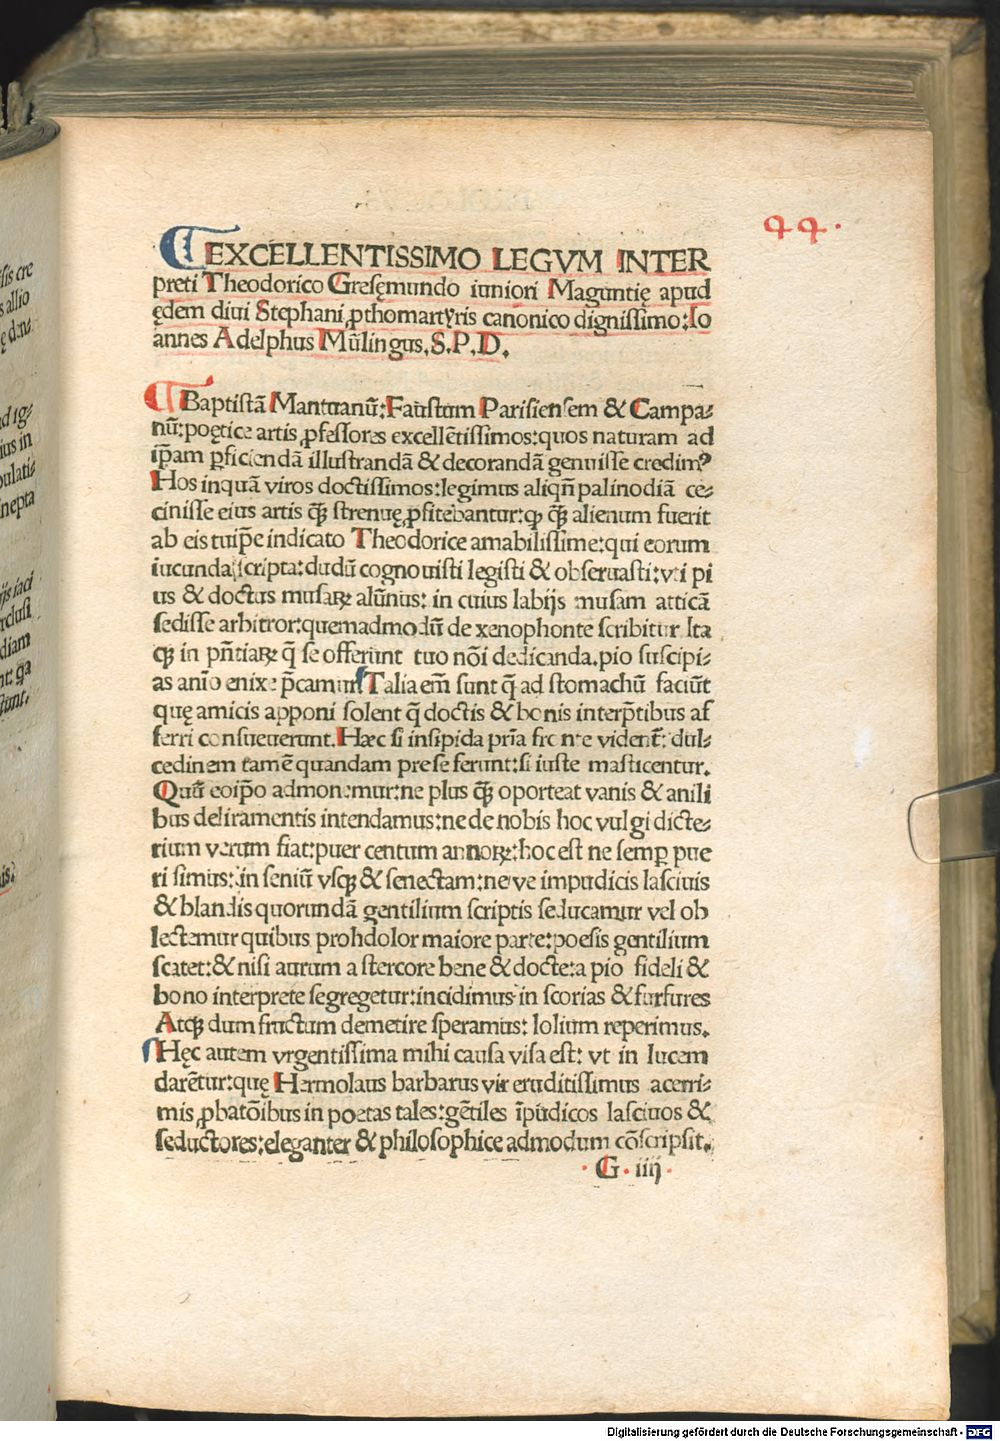 44.
EXCELLENTISSIMO LEGVM INTER
preti Theodorico Gresęmundo iuniori Maguntię apud
ędem diui Stephani ꝓthomartyris canonico dignissimo: Io
annes Adelphus Mūlingus. S. P. D.
Baptistā Mantuanū: Faustum Parisiensem & Campa⸗
nū: poętice artis ꝓfessores excellētissimos: quos naturam ad
ip̄am ꝑficiendā illustrandā & decorandā genuisse credimꝰ
Hos inquā viros doctissimos: legimus aliqñ palinodiā ce⸗
cinisse eius artis qꝫ̄ strenuę ꝓfitebantur: ꝙ qꝫ̄ alienum fuerit
ab eis tuip̄e indicato Theodorice amabilissime: qui eorum
iucunda scripta: dudū cognouisti legisti & obseruasti: vti pi
us & doctus musaꝝ alūnus: in cuius labijs musam atticā
sedisse arbitror: quemadmodū de xenophonte scribitur Ita
qꝫ in pn̄tiaꝝ q̄ se offerunt tuo nōi dedicanda. pio suscipi⸗
as anīo enixe p̄camur Talia em̄ sunt q̄ ad stomachū faciūt
quę amicis apponi solent q̄ doctis & bonis interp̄tibus af
ferri consueuerunt. Hæc si insipida pria fronte videnť: dul⸗
cedinem tamē quandam pre se ferunt: si iuste masticentur.
Quū eoip̄o admonemur: ne plus qꝫ̄ oporteat vanis & anili
bus deliramentis intendamus: ne de nobis hoc vulgi dicte⸗
rium verum fiat: puer centum annoꝝ: hoc est ne semꝑ pue
ri simus: in seniū vsqꝫ & senectam: neve impudicis lasciuis
& blandis quorundā gentilium scriptis seducamur vel ob
lectemur quibus prohdolor maiore parte: poesis gentilium
scatet: & nisi aurum a stercore bene & docte: a pio fideli &
bono interprete segregetur: incidimus in scorias & furfures
Atqꝫ dum fructum demetire speramus: lolium reperimus.
Hęc autem vrgentissima mihi causa visa est: vt in lucem
darētur: quę Hermolaus barbarus vir eruditissimus acerri⸗
mis ꝓbatōibus in poetas tales: gētiles īpudicos lasciuos &
seductores: eleganter & philosophice admodum cōscripsit.
G. iiij
Digitalisierung gefördert durch die Deutsche Forschungsgemeinschaft - DFG